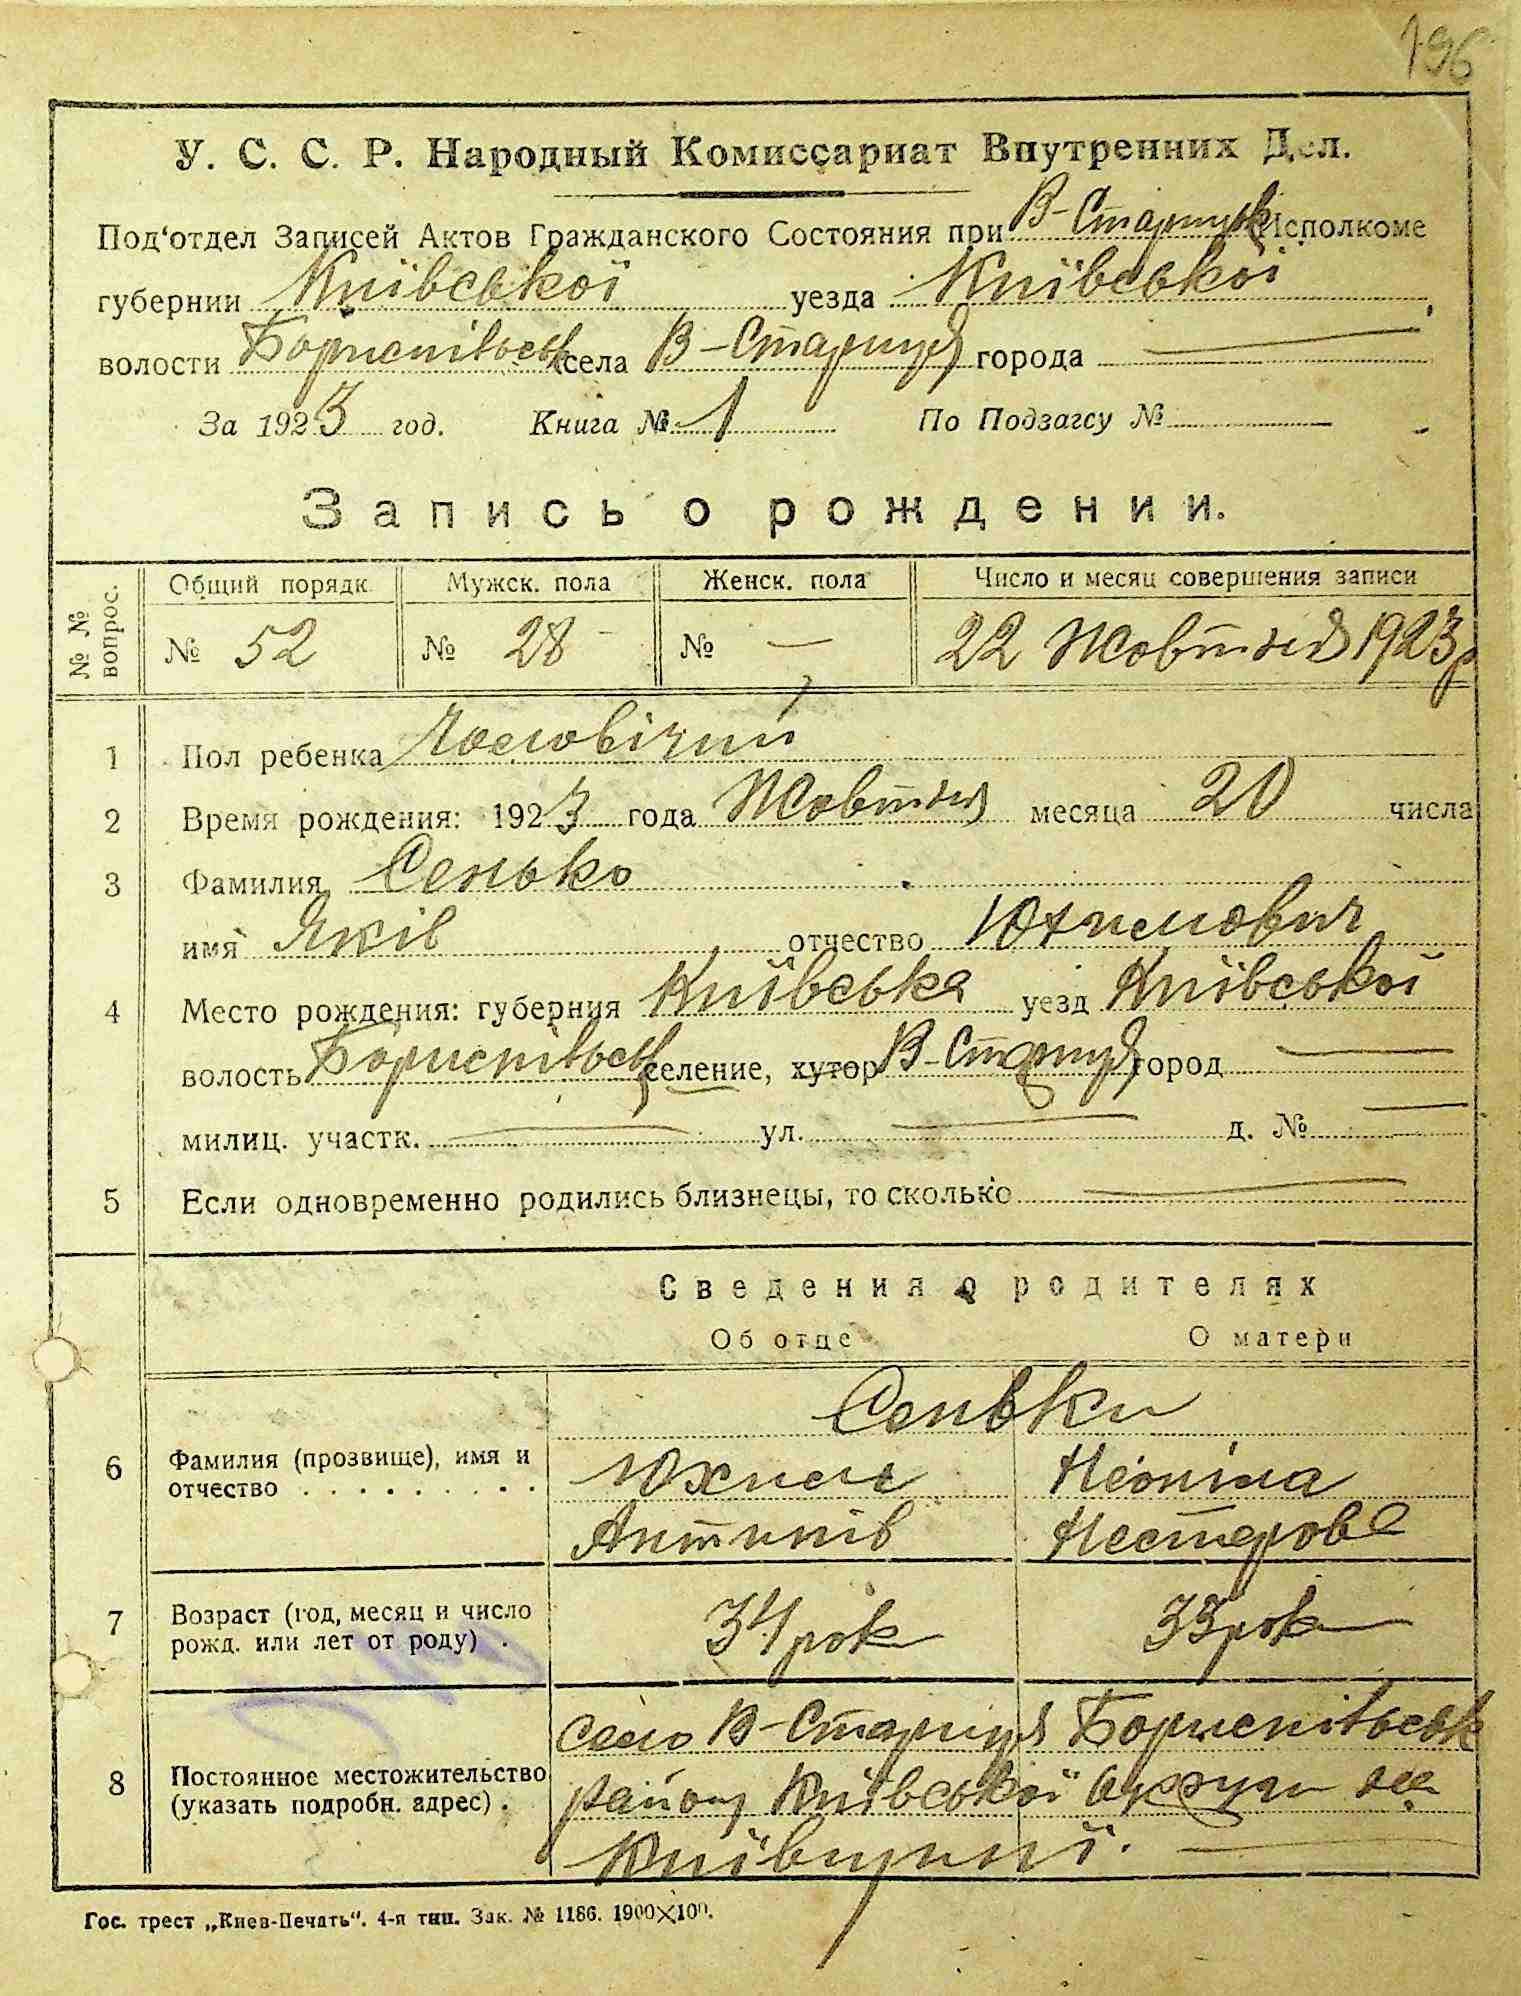 196
У. С. С. Р. Народный Комиссариат Внутренних Дел.
Под'отдел Записей Актов Гражданского Состояния при В-Стариць Исполкоме
губернии Київської уезда Київської
волости Бориспільськ села В-Стариця города —
За 1923 год. Книга № 1 По Подзагсу №
Запись о рождении.
№ № вопрос. Общий порядк. Мужск. пола Женск. пола Число и месяц совершения записи
№ 52 № 28 № — 22 Жовтня 1923 р
1 Пол ребенка Чоловічий
2 Время рождения: 1923 года Жовтня месяца 20 числа
3 Фамилия Сенько
имя Яків отчество Юхимович
4 Место рождения: губерния Київська уезд Київської
волость Бориспільськ селение, хутор В-Стариця город —
милиц. участк. — ул. — д. № —
5 Если одновременно родились близнецы, то сколько —
Сведения о родителях
Об отце О матери
Сеньки
6 Фамилия (прозвище), имя и отчество . . . . . . . . . Юхим Неоніла
Антипів Нестерова
7 Возраст (год, месяц и число рожд. или лет от роду) . 34 рок 33 рок
8 Постоянное местожительство (указать подробн. адрес) . село В-Стариця Бориспільськ
району Київської округи на
Київщині. —
Гос. трест „Киев-Печать“. 4-я тип. Зак. № 1186. 1900×100.